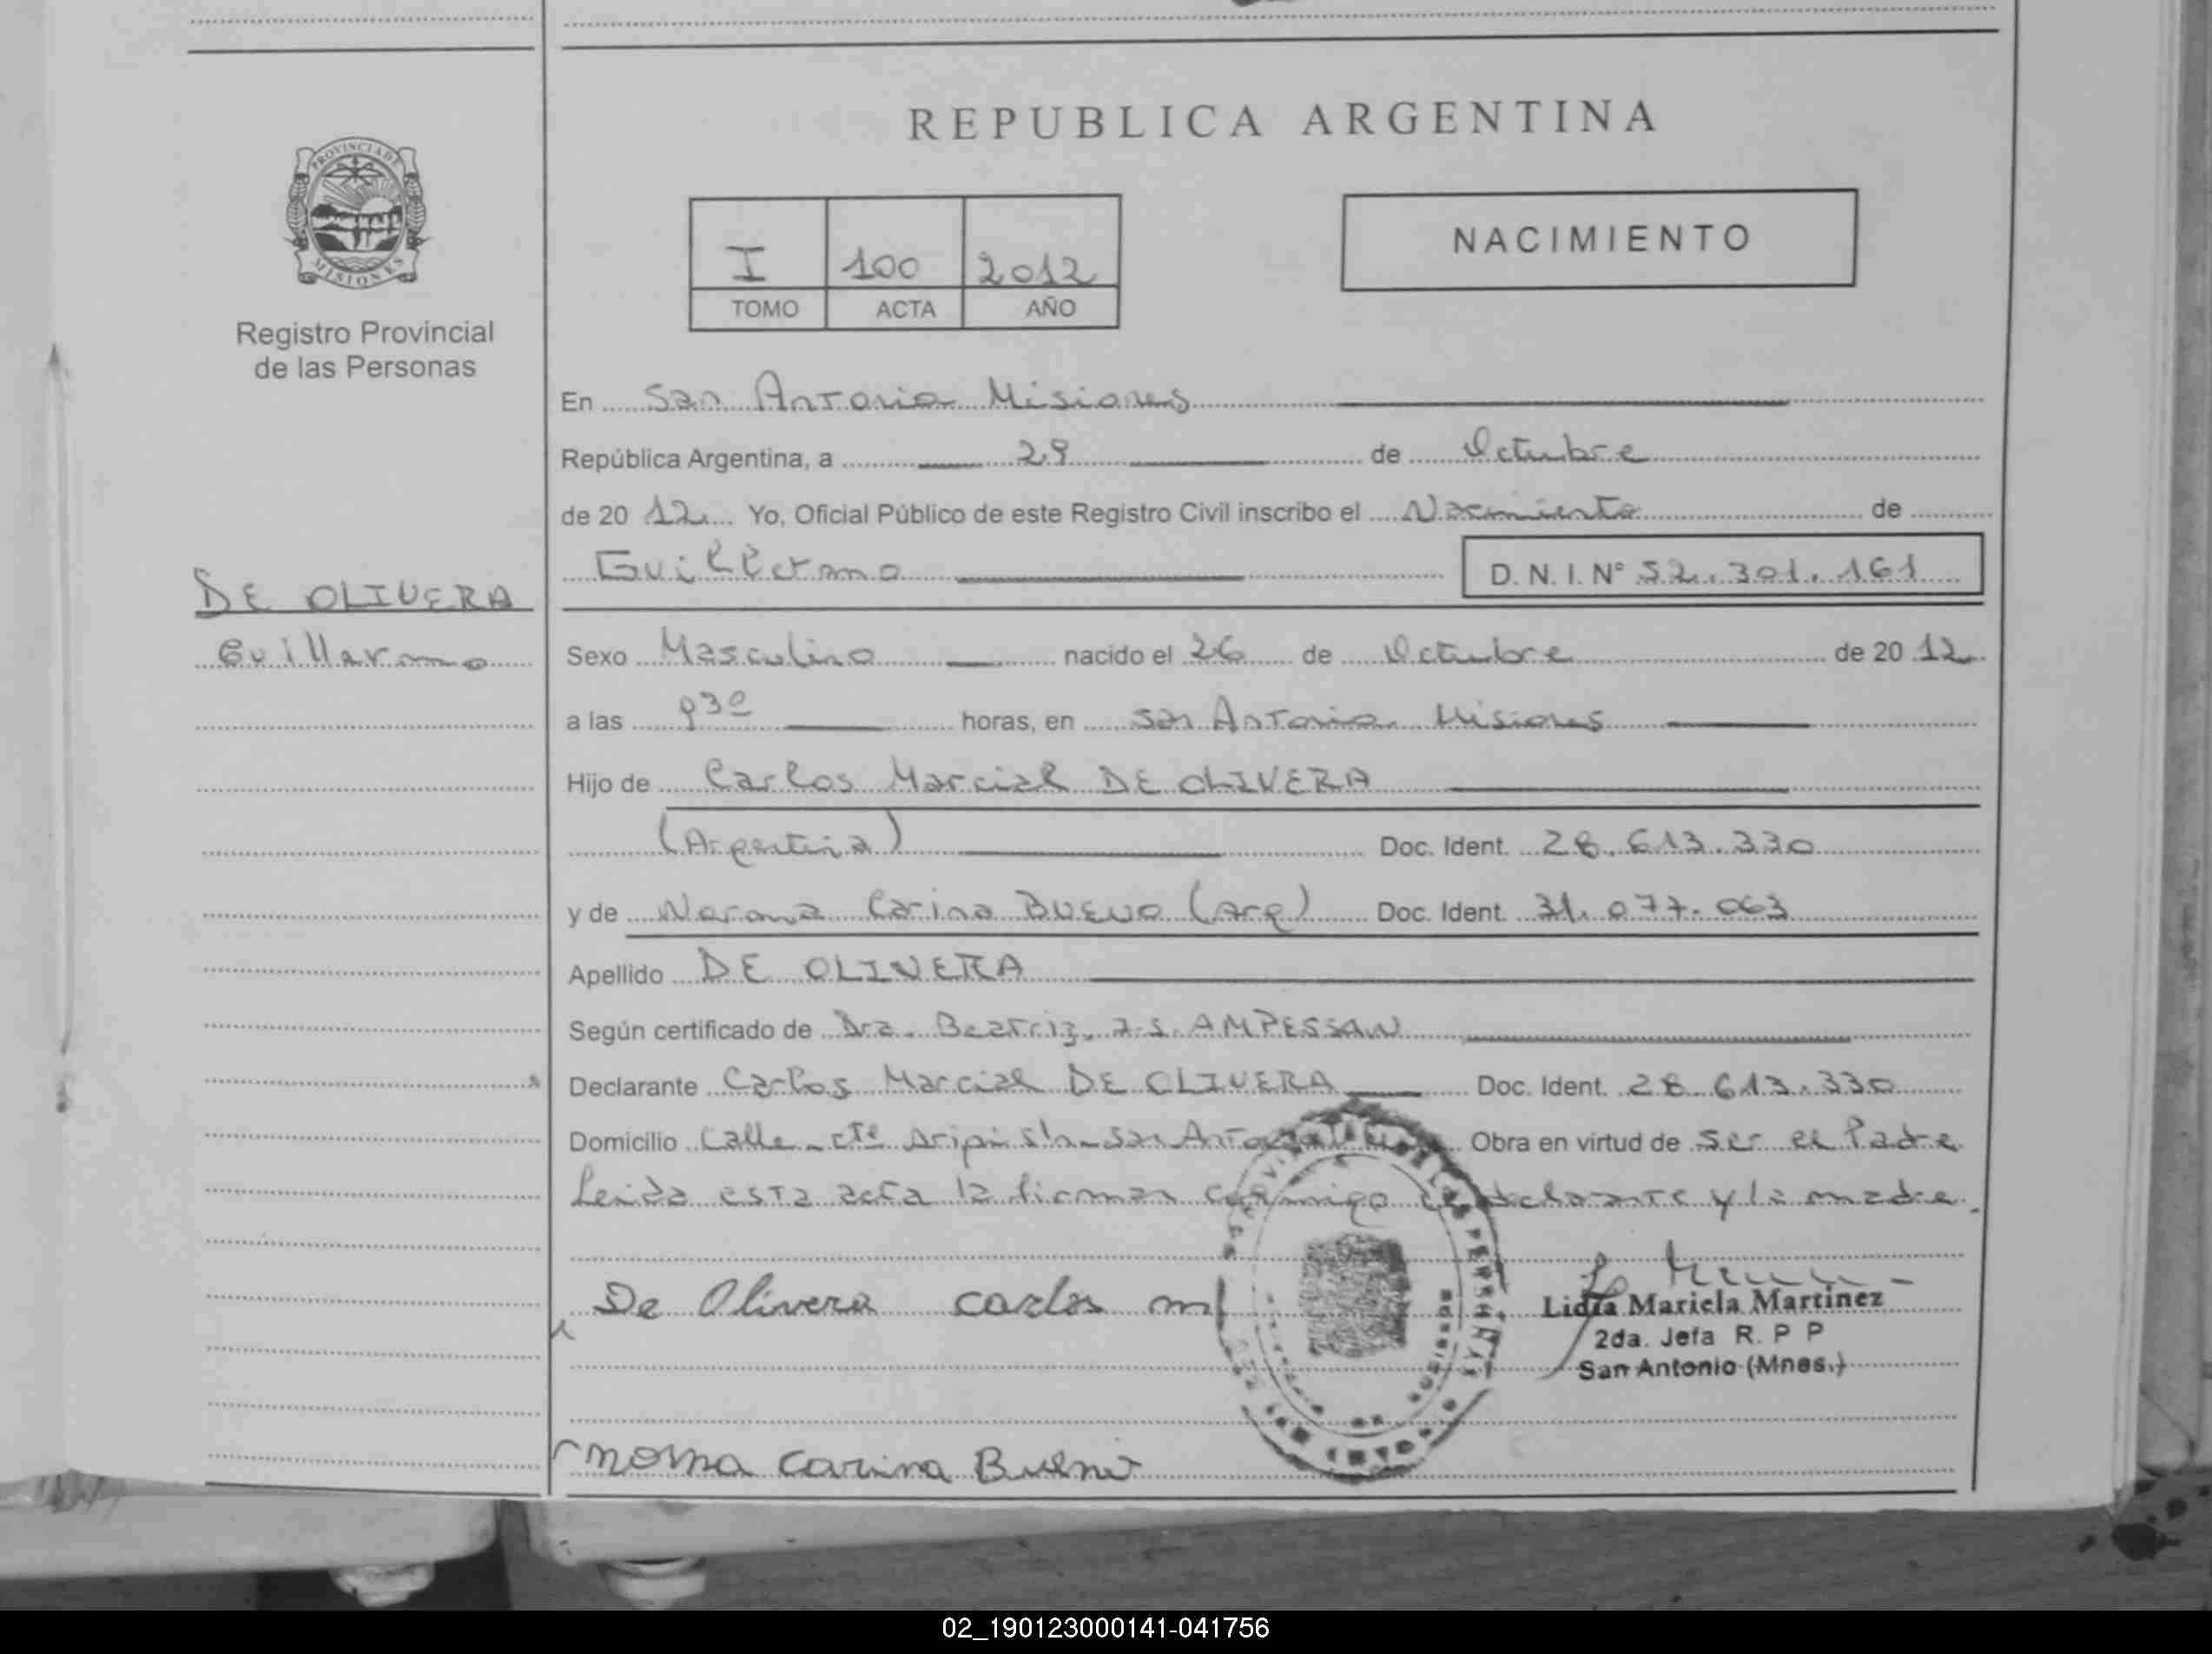 REPUBLICA ARGENTINA
PROVINCIA DE
MISIONES
Registro Provincial
de las Personas
I 100 2012
TOMO ACTA AÑO
NACIMIENTO
En San Antonio Misiones
República Argentina, a 29 de Octubre
de 20 12 Yo, Oficial Público de este Registro Civil inscribo el Nacimiento de
Guillermo D. N. I. Nº 52.301.161
DE OLIVERA
Guillermo
Sexo Masculino nacido el 26 de Octubre de 20 12
a las 930 horas, en San Antonio Misiones
Hijo de Carlos Marcial DE OLIVERA
(Argentina) Doc. Ident. 28.613.330
y de Norma Carina BUENO (Arg) Doc. Ident. 31.077.063
Apellido DE OLIVERA
Según certificado de Dra. Beatriz AMPESSAN
Declarante Carlos Marcial DE OLIVERA Doc. Ident. 28.613.330
Domicilio Calle s/n San Obra en virtud de ser el Padre
Leida esta acta la firman conmigo el declarante y la madre.
De Olivera carlos m
Lidia Mariela Martinez
2da. Jefa R. P P
San Antonio (Mnes.)
Norma Carina Bueno
02_190123000141-041756